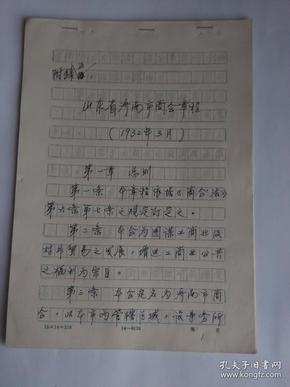 附録
山东省济南市商会章程
(1932年三月)
第一章 总则
第一条 本章程依据《商会法》
第六条第七条之规定订定之。
第二条 本会为图谋工商业及
对外贸易之发展，增进工商业公共
之福利为宗旨。
第三条 本会定名为济南市商
会，以本市为管辖区域，设事务所
第 1 页
孔夫子旧书网